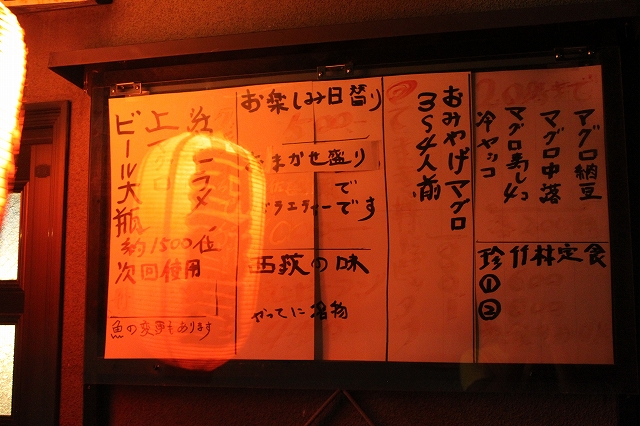 マグロ納豆
マグロ中落
冷ヤッコ
珍竹林定食
①
②
おみやげマグロ
3〜4人前
お楽しみ日替り
まかせ盛り
で
ラエティーです
西荻の味
やってに名物
ビール大瓶
約1500位
次回使用
魚の変更もあります